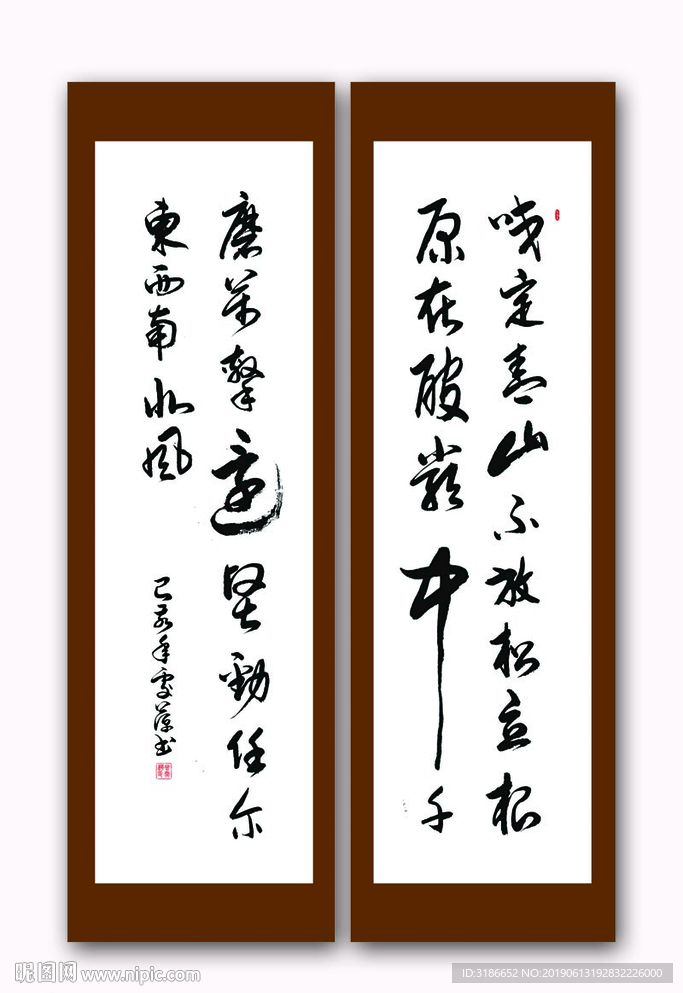 咬定青山不放松立根
原在破巖中千
磨萬擊還堅勁任尔
東西南北風
己亥年
昵图网 www.nipic.com
ID:3186652 NO:20190613192832226000